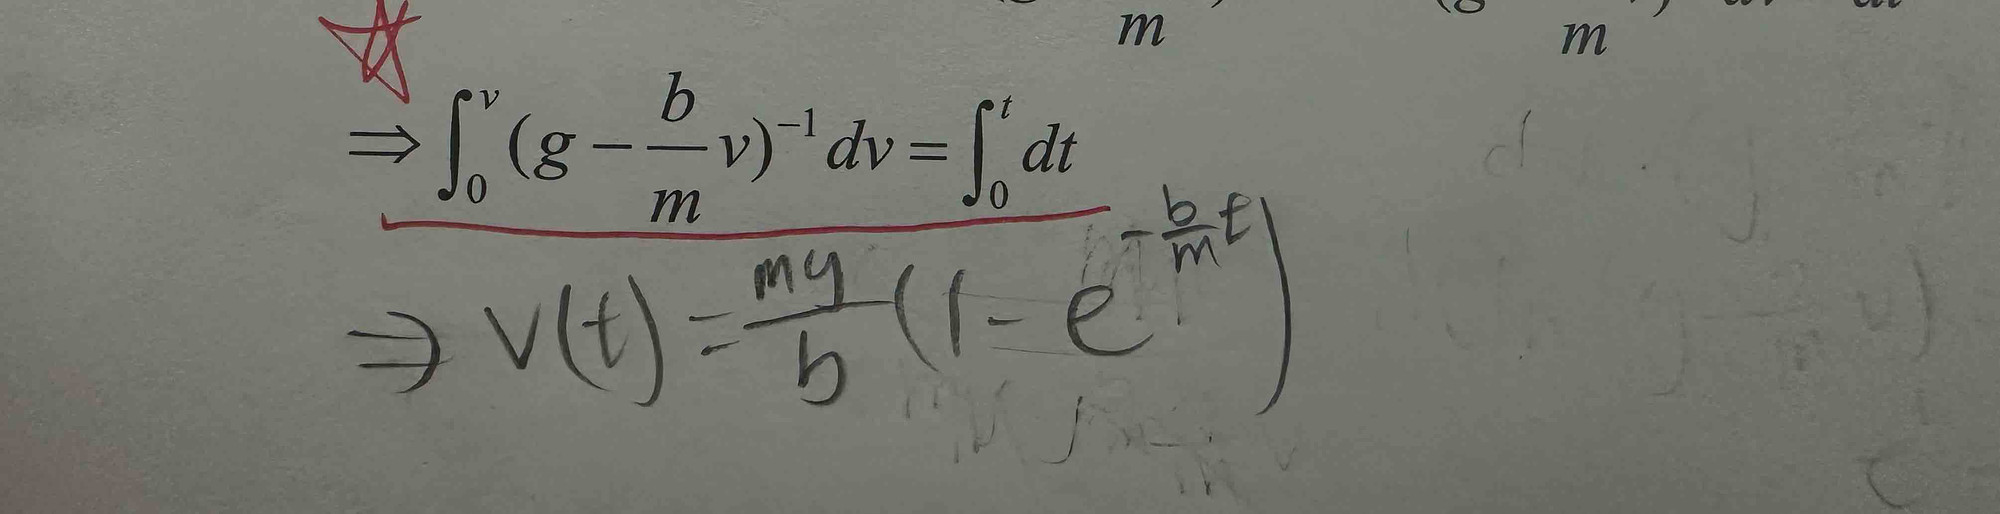 m m
⇒ ∫₀ᵛ (g − b/m v)⁻¹ dv = ∫₀ᵗ dt
⇒ v(t) = mg/b (1 − e^(−b/m t))